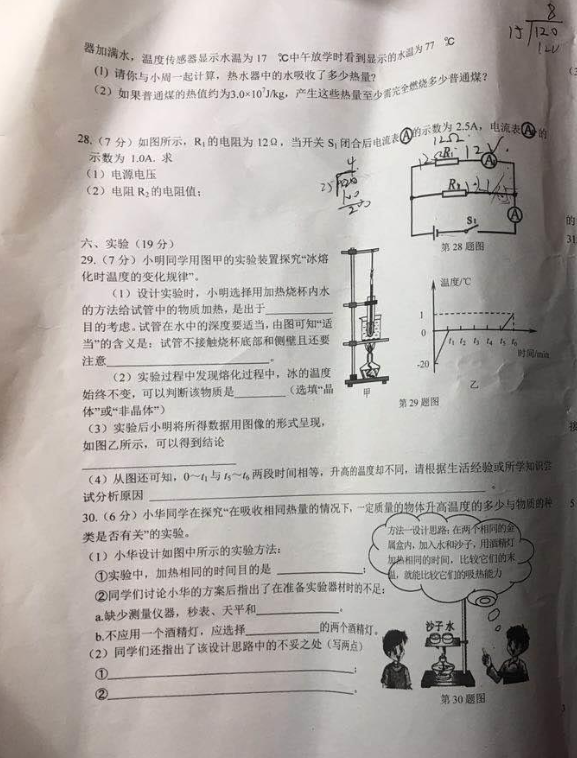 器加满水，温度传感器显示水温为 17 ℃中午放学时看到显示的水温为 77 ℃
(1) 请你与小周一起计算，热水器中的水吸收了多少热量？
(2) 如果普通煤的热值约为3.0×10⁷J/kg，产生这些热量至少需完全燃烧多少普通煤？
8
15 120
120
28.（7 分）如图所示，R₁的电阻为 12Ω，当开关 S₁ 闭合后电流表Ⓐ的示数为 2.5A，电流表Ⓐ的
示数为 1.0A. 求
(1) 电源电压
(2) 电阻 R₂的电阻值；
12Ω
R₁
12V
A
R₂
A
S₁
第 28 题图
六、实验（19 分）
29.（7 分）小明同学用图甲的实验装置探究“冰熔
化时温度的变化规律”。
(1) 设计实验时，小明选择用加热烧杯内水
的方法给试管中的物质加热，是出于
目的考虑. 试管在水中的深度要适当，由图可知“适
当”的含义是：试管不接触烧杯底部和侧壁且还要
注意。
(2) 实验过程中发现熔化过程中，冰的温度
始终不变，可以判断该物质是（选填“晶
体”或“非晶体”）
(3) 实验后小明将所得数据用图像的形式呈现，
如图乙所示，可以得到结论
温度/℃
1
0
-20
t₁ t₂ t₃ t₄ t₅ t₆
时间/min
甲
乙
第 29 题图
(4) 从图还可知，0～t₁ 与 t₅～t₆ 两段时间相等，升高的温度却不同，请根据生活经验或所学知识尝
试分析原因
30.（6 分）小华同学在探究“在吸收相同热量的情况下，一定质量的物体升高温度的多少与物质的种
类是否有关”的实验。
(1) 小华设计如图中所示的实验方法：
①实验中，加热相同的时间目的是；
②同学们讨论小华的方案后指出了在准备实验器材时的不足：
a.缺少测量仪器，秒表、天平和。
b.不应用一个酒精灯，应选择的两个酒精灯。
(2) 同学们还指出了该设计思路中的不妥之处（写两点）
①；
②。
方法一设计思路：在两个相同的金
属盒内，加入水和沙子，用酒精灯
加热相同的时间，比较它们的末
温，就能比较它们的吸热能力
沙子 水
第 30 题图
的
31